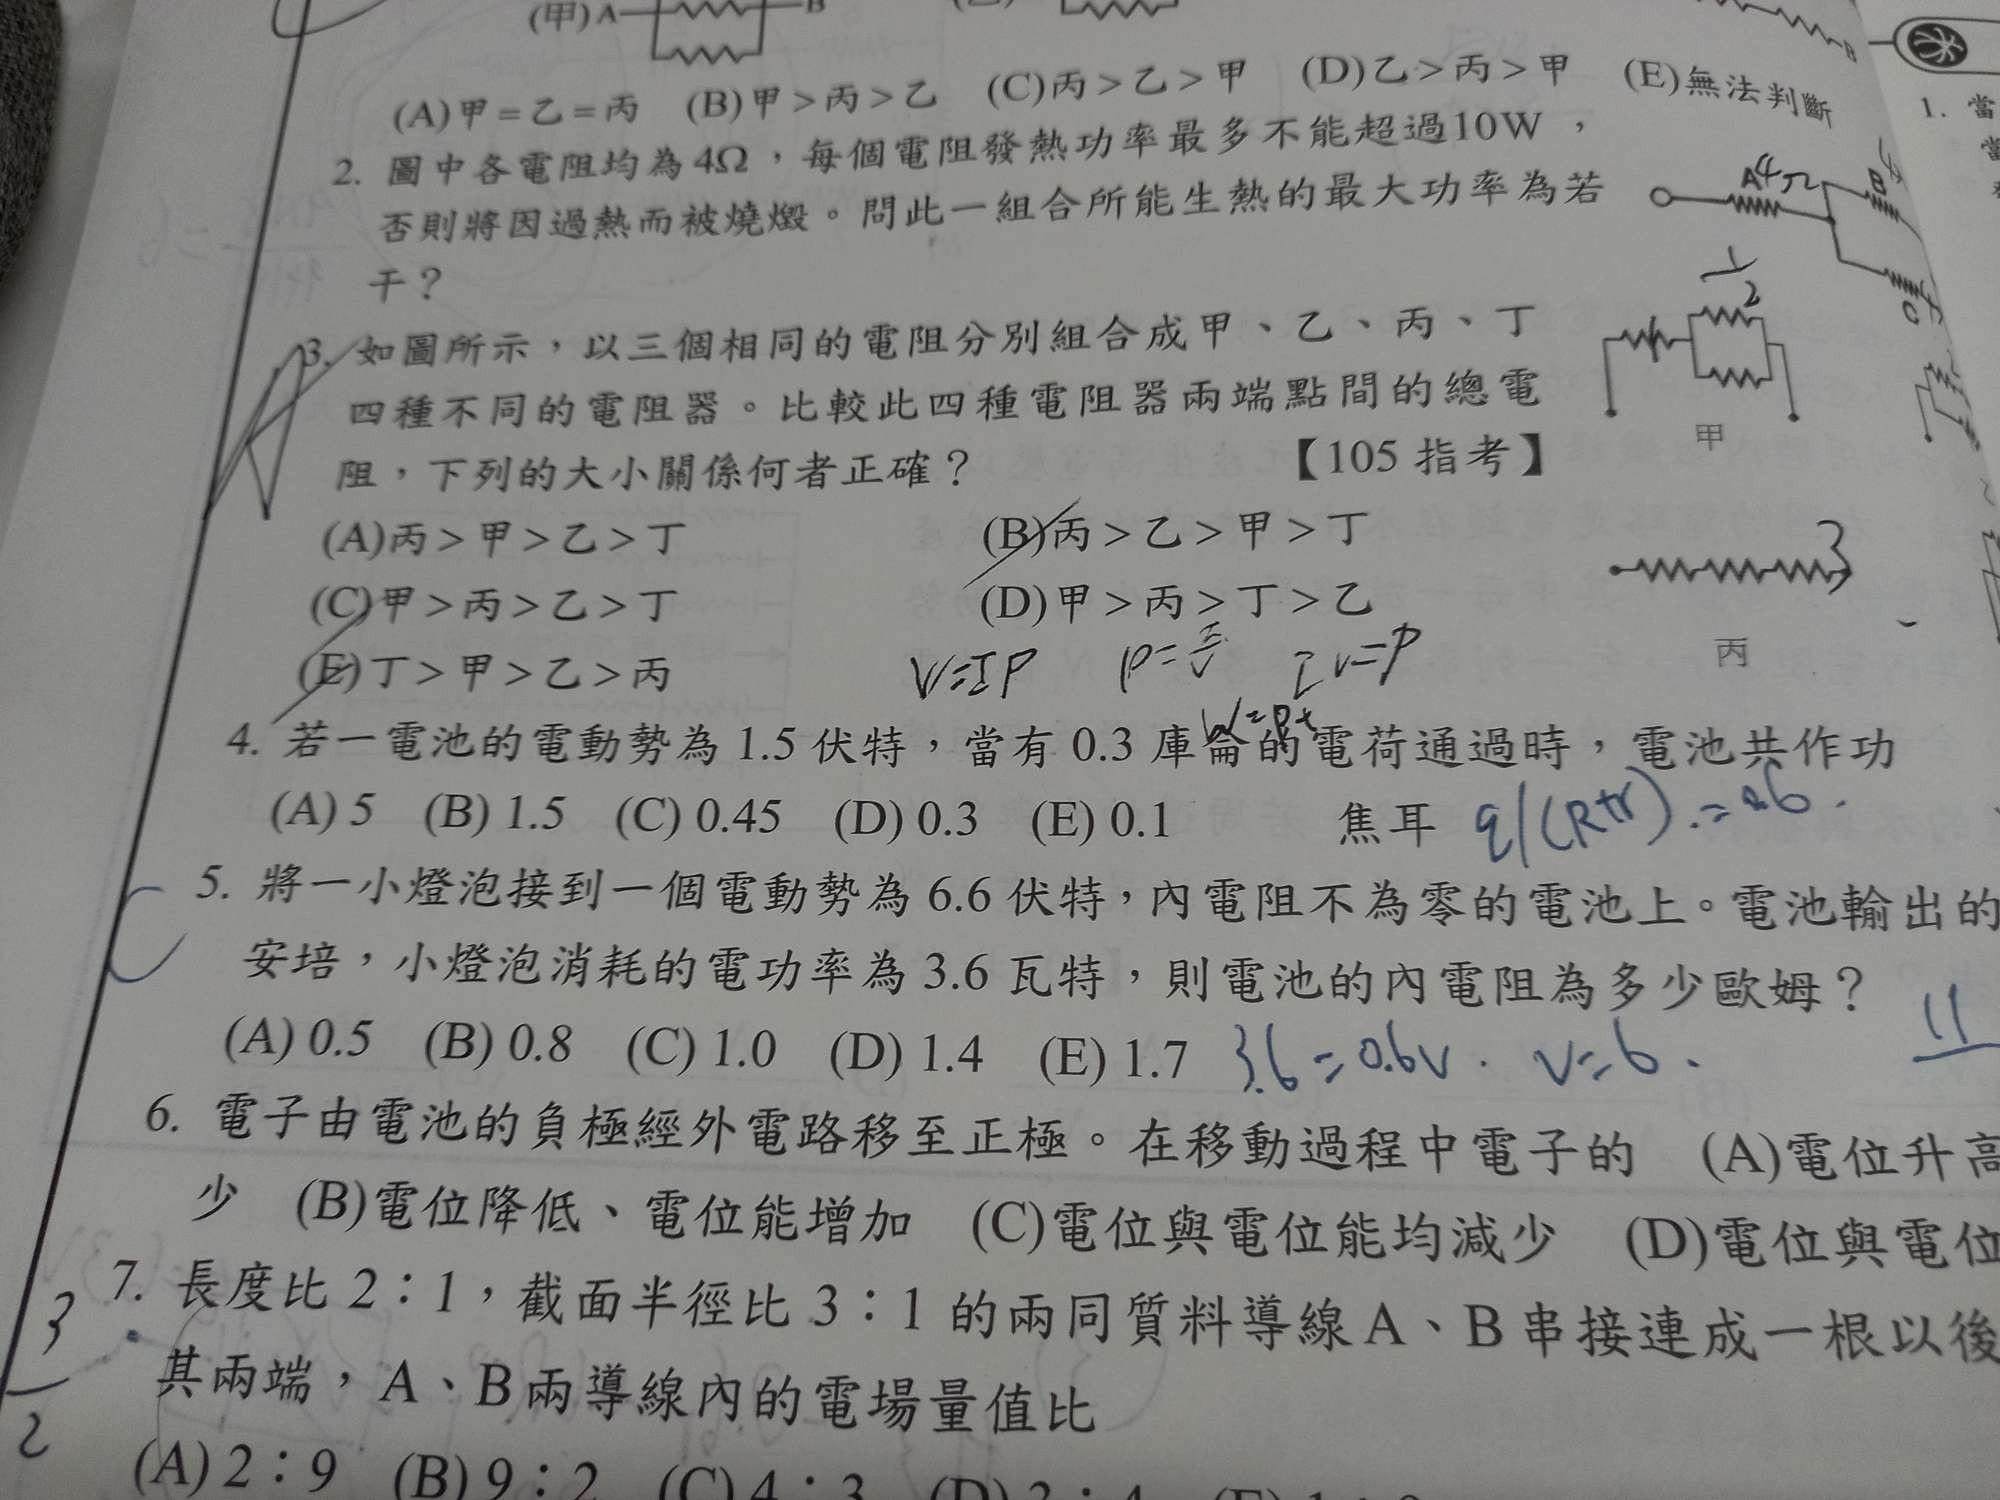 (甲) A B
(A)甲=乙=丙 (B)甲>丙>乙 (C)丙>乙>甲 (D)乙>丙>甲 (E)無法判斷
2. 圖中各電阻均為4Ω，每個電阻發熱功率最多不能超過10W，
否則將因過熱而被燒燬。問此一組合所能生熱的最大功率為若
干？
A 4Ω B
C
3. 如圖所示，以三個相同的電阻分別組合成甲、乙、丙、丁
四種不同的電阻器。比較此四種電阻器兩端點間的總電
阻，下列的大小關係何者正確？ 【105 指考】
甲
(A)丙>甲>乙>丁 (B)丙>乙>甲>丁
(C)甲>丙>乙>丁 (D)甲>丙>丁>乙
(E)丁>甲>乙>丙
丙
3
V=IP Iv=P
W=Pt
4. 若一電池的電動勢為 1.5 伏特，當有 0.3 庫侖的電荷通過時，電池共作功
(A) 5 (B) 1.5 (C) 0.45 (D) 0.3 (E) 0.1 焦耳
5. 將一小燈泡接到一個電動勢為 6.6 伏特，內電阻不為零的電池上。電池輸出的
安培，小燈泡消耗的電功率為 3.6 瓦特，則電池的內電阻為多少歐姆？
(A) 0.5 (B) 0.8 (C) 1.0 (D) 1.4 (E) 1.7 3.6=0.6V. V=6.
11
6. 電子由電池的負極經外電路移至正極。在移動過程中電子的 (A)電位升高
少 (B)電位降低、電位能增加 (C)電位與電位能均減少 (D)電位與電位
7. 長度比 2：1，截面半徑比 3：1 的兩同質料導線 A、B 串接連成一根以後
其兩端，A、B 兩導線內的電場量值比
(A) 2：9 (B) 9：2 (C) 4：3
3
2
1. 當